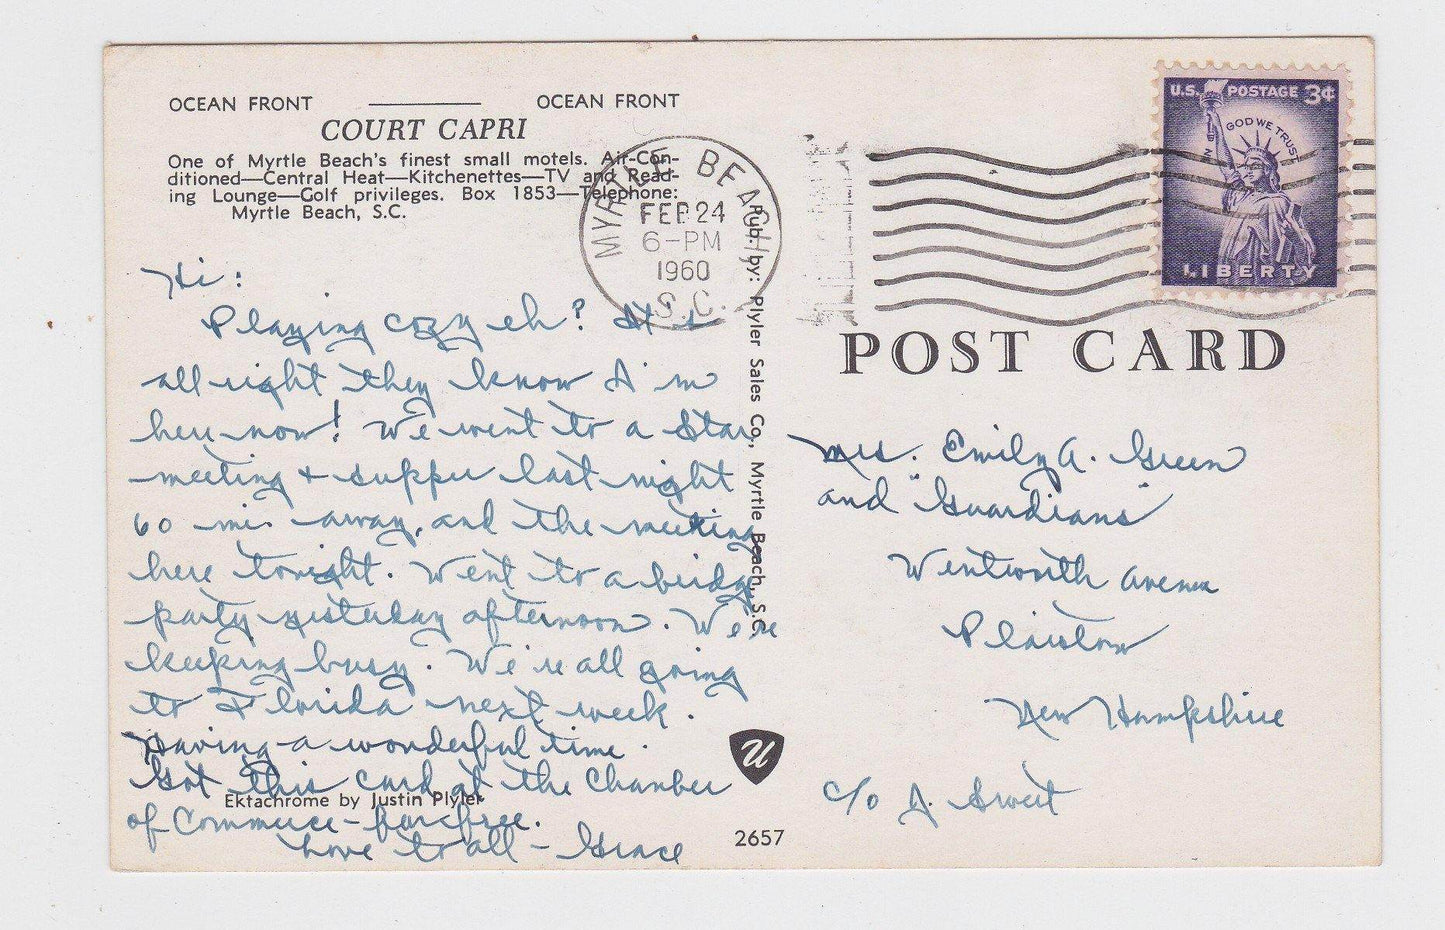 OCEAN FRONT ———— OCEAN FRONT
COURT CAPRI
One of Myrtle Beach's finest small motels. Air-Con-
ditioned—Central Heat—Kitchenettes—TV and Read-
ing Lounge—Golf privileges. Box 1853—Telephone:
Myrtle Beach, S.C.
MYRTLE BEACH
FEB 24
6-PM
1960
S.C.
U.S. POSTAGE 3¢
IN GOD WE TRUST
LIBERTY
POST CARD
Hi:
Playing cozy eh? It's
all right they know I'm
here now! We went to a Star
meeting + supper last night
60 mi. away, and the meeting
here tonight. Went to a bridge
party yesterday afternoon. We're
keeping busy. We're all going
to Florida next week.
Having a wonderful time.
Got this card at the Chamber
of Commerce - for free.
Love to all - Grace
Ektachrome by Justin Plyler
Pub. by: Plyler Sales Co., Myrtle Beach, S.C.
2657
Mrs. Emily A. Green
and "Guardians"
Wentworth Avenue
Plaistow
New Hampshire
c/o A. Sweet